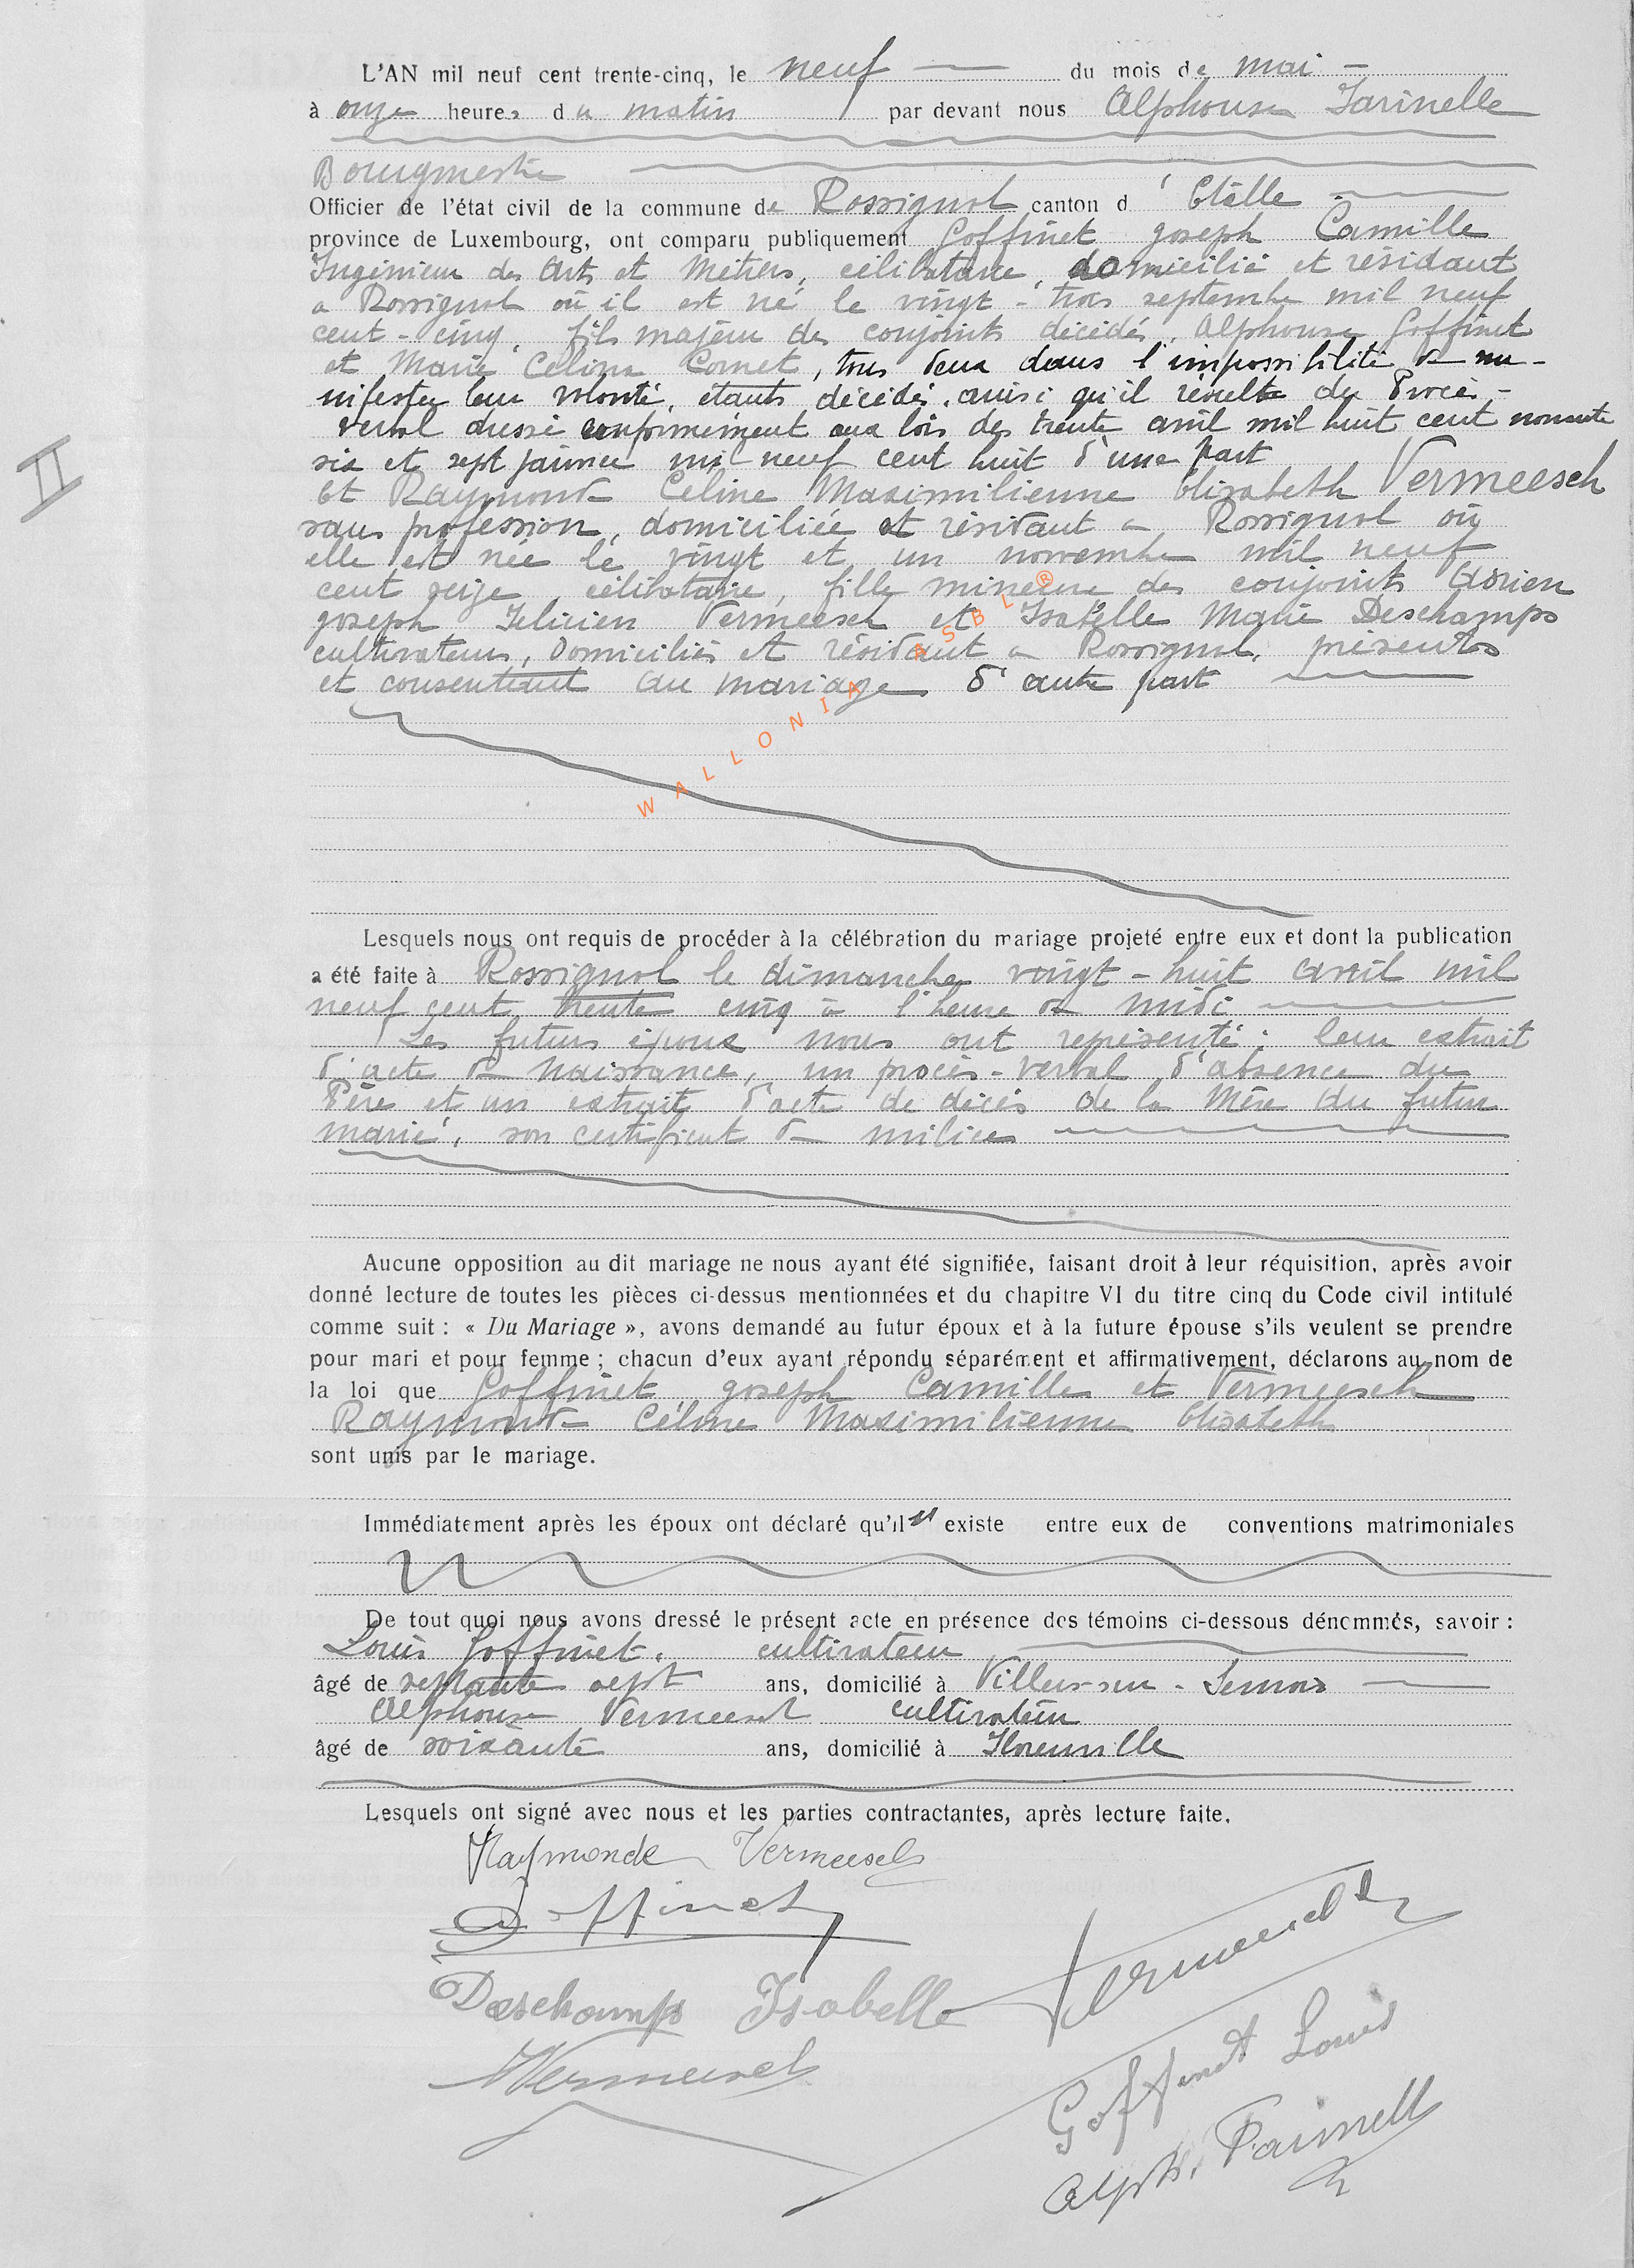 L'AN mil neuf cent trente-cinq, le neuf du mois de mai
à onze heures du matin par devant nous Alphonse Farinelle
Bourgmestre
Officier de l'état civil de la commune de Rossignol canton d'Etalle
province de Luxembourg, ont comparu publiquement Goffinet Joseph Camille
Ingénieur des Arts et Métiers, célibataire, domicilié et résidant
a Rossignol où il est né le vingt-trois septembre mil neuf
cent-cinq, fils majeur des conjoints décédés, Alphonse Goffinet
et Marie Celina Cornet, tous deux dans l'impossibilité de ma-
nifester leur volonté, étants décédés, ainsi qu'il résulte du Procès-
verbal dressé conformément aux lois des trente avril mil huit cent nonante
six et sept janvier mil neuf cent huit d'une part
Et Raymonde Celine Maximilienne Elisabeth Vermeesch
sans profession, domiciliée et résidant a Rossignol où
elle est née le vingt et un novembre mil neuf
cent seize, célibataire, fille mineure des conjoints Adrien
Joseph Felicien Vermeesch et Isabelle Marie Deschamps
cultivateurs, domiciliés et résidant a Rossignol, présents
et consentant au mariage d'autre part
WALLONIA ASBL®
II
Lesquels nous ont requis de procéder à la célébration du mariage projeté entre eux et dont la publication
a été faite à Rossignol le dimanche vingt-huit avril mil
neuf cent trente cinq à l'heure de midi
Les futurs époux nous ont représenté: leur extrait
d'acte de naissance, un procès-verbal d'absence du
Père et un extrait d'acte de décès de la Mère du futur
marié, son certificat de milice
Aucune opposition au dit mariage ne nous ayant été signifiée, faisant droit à leur réquisition, après avoir
donné lecture de toutes les pièces ci-dessus mentionnées et du chapitre VI du titre cinq du Code civil intitulé
comme suit : « Du Mariage », avons demandé au futur époux et à la future épouse s'ils veulent se prendre
pour mari et pour femme ; chacun d'eux ayant répondu séparément et affirmativement, déclarons au nom de
la loi que Goffinet Joseph Camille et Vermeesch
Raymonde Céline Maximilienne Elisabeth
sont unis par le mariage.
Immédiatement après les époux ont déclaré qu'il existe entre eux de conventions matrimoniales
De tout quoi nous avons dressé le présent acte en présence des témoins ci-dessous dénommés, savoir :
Louis Goffinet, cultivateur
âgé de septante sept ans, domicilié à Villers-sur-Semois
Alphonse Vermeesch cultivateur
âgé de soixante ans, domicilié à Florenville
Lesquels ont signé avec nous et les parties contractantes, après lecture faite.
Raymonde Vermeesch
Goffinet
Vermeesch
Deschamps Isabelle
Goffinet Louis
Vermeesch
Alph. Farinelle